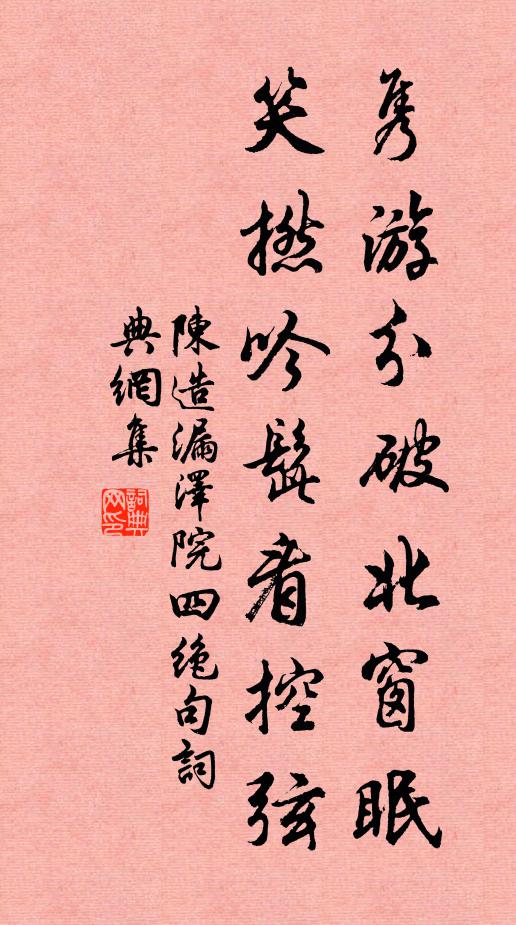 隽游分破北窗眠
笑撚吟髭看控弦
陳造漏澤院四絕句詞
典網集
詞典网印